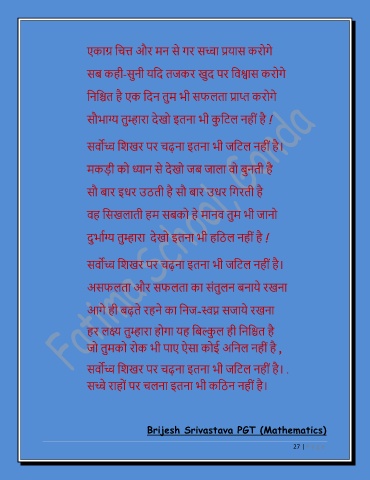 एकाग्र चित्त और मन से गर सच्चा प्रयास करोगे
सब कही-सुनी यदि तजकर खुद पर विश्वास करोगे
निश्चित है एक दिन तुम भी सफलता प्राप्त करोगे
सौभाग्य तुम्हारा देखो इतना भी कुटिल नहीं है !
सर्वोच्च शिखर पर चढ़ना इतना भी जटिल नहीं है।
मकड़ी को ध्यान से देखो जब जाला वो बुनती है
सौ बार इधर उठती है सौ बार उधर गिरती है
वह सिखलाती हम सबको हे मानव तुम भी जानो
दुर्भाग्य तुम्हारा देखो इतना भी हठिल नहीं है !
सर्वोच्च शिखर पर चढ़ना इतना भी जटिल नहीं है।
असफलता और सफलता का संतुलन बनाये रखना
आगे ही बढ़ते रहने का निज-स्वप्न सजाये रखना
हर लक्ष्य तुम्हारा होगा यह बिल्कुल ही निश्चित है
जो तुमको रोक भी पाए ऐसा कोई अनिल नहीं है ,
सर्वोच्च शिखर पर चढ़ना इतना भी जटिल नहीं है। .
सच्चे राहों पर चलना इतना भी कठिन नहीं है।
Fatima School, Gonda
Brijesh Srivastava PGT (Mathematics)
27 |